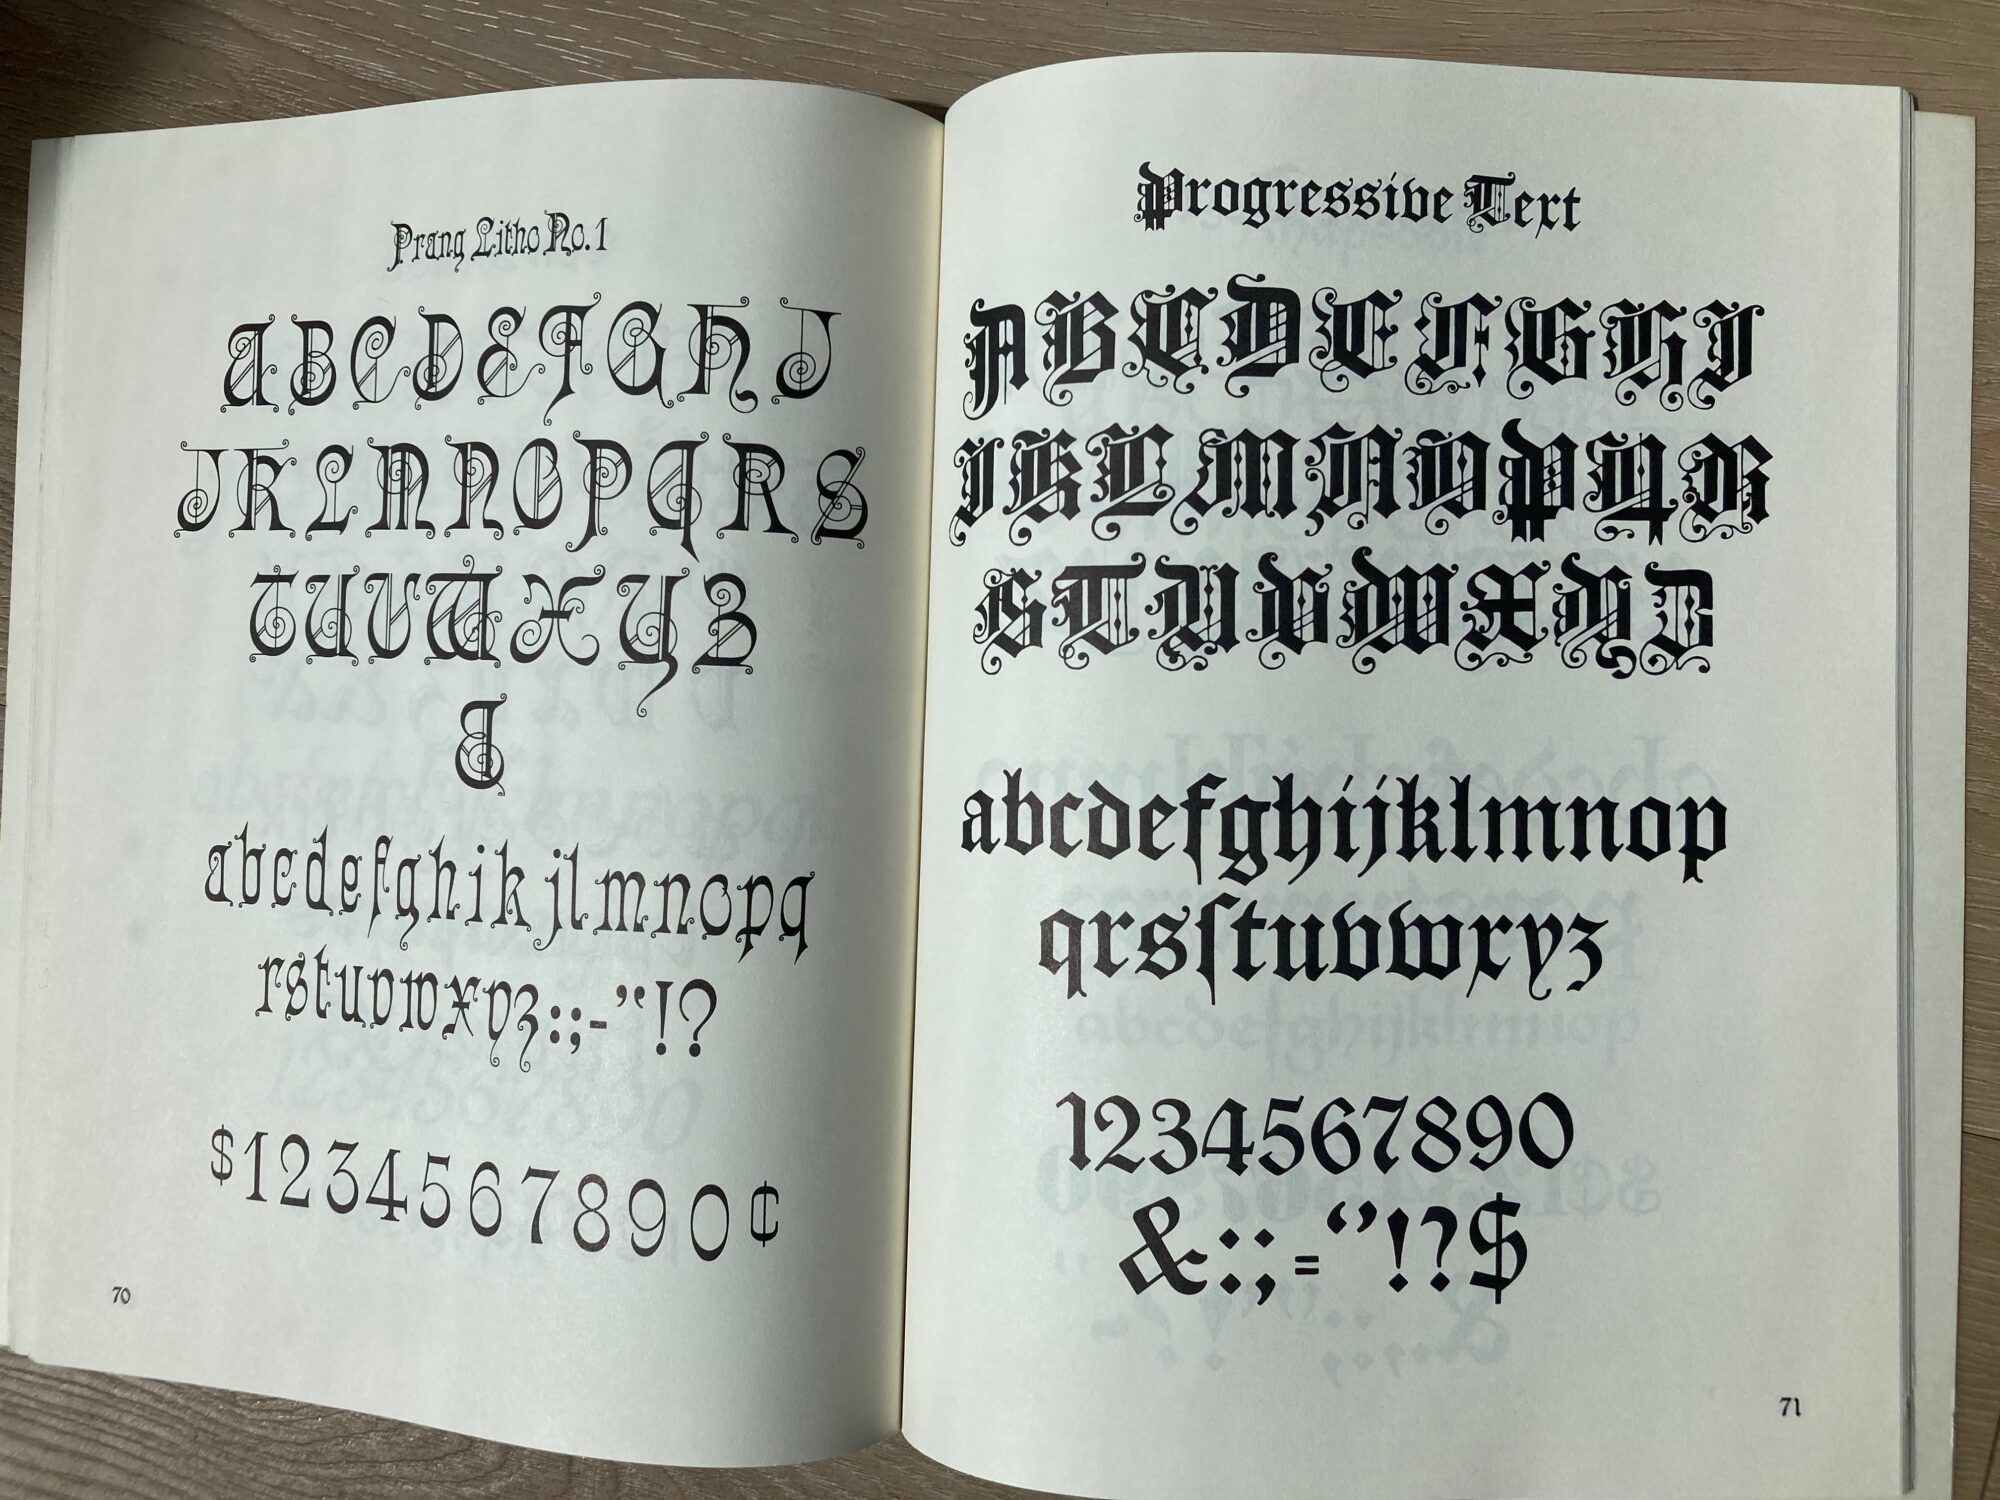 Prang Litho No. 1
ABCDEFGHI
JKLMNOPQRS
TUVWXYZ
&
abcdefghikjlmnopq
rstuvwxyz:;-’‘!?
$1234567890¢
70
Progressive Text
ABCDEFGHI
JKLMNOPQR
STUVWXYZ
abcdefghijklmnop
qrsſtuvwxyz
1234567890
&:;=‘’!?$
71